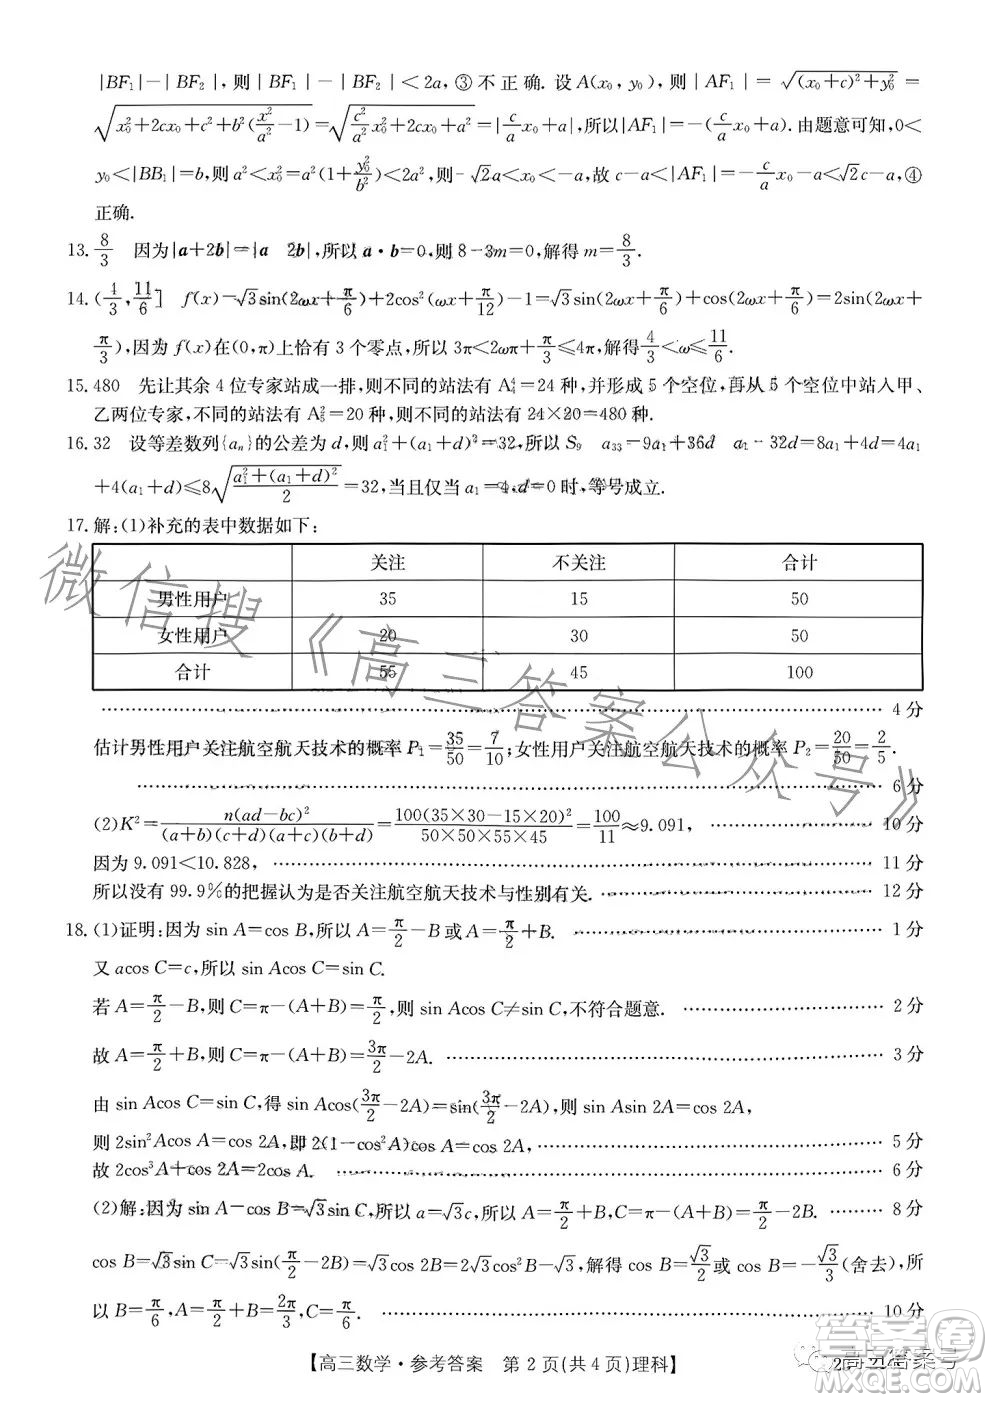 |BF₁|－|BF₂|，则||BF₁|－|BF₂||<2a，③不正确. 设A(x₀，y₀)，则|AF₁|＝√((x₀+c)²+y₀²)＝
√(x₀²+2cx₀+c²+b²(x₀²/a²－1))＝√(c²/a² x₀²+2cx₀+a²)＝|c/a x₀+a|，所以|AF₁|＝－(c/a x₀+a). 由题意可知，0<
y₀<|BB₁|＝b，则a²<x₀²＝a²(1+y₀²/b²)<2a²，则－√2a<x₀<－a，故c－a<|AF₁|＝－c/a x₀－a<√2c－a，④
正确.
13. 8/3　因为|a+2b|＝|a　2b|，所以a·b＝0，则8－3m＝0，解得m＝8/3.
14. (4/3，11/6]　f(x)＝√3sin(2ωx+π/6)+2cos²(ωx+π/12)－1＝√3sin(2ωx+π/6)+cos(2ωx+π/6)＝2sin(2ωx+
π/3)，因为f(x)在(0，π)上恰有3个零点，所以3π<2ωπ+π/3≤4π，解得4/3<ω≤11/6.
15. 480　先让其余4位专家站成一排，则不同的站法有A₄⁴＝24种，并形成5个空位，再从5个空位中站入甲、
乙两位专家，不同的站法有A₅²＝20种，则不同的站法有24×20＝480种.
16. 32　设等差数列{aₙ}的公差为d，则a₁²+(a₁+d)²＝32，所以S₉　a₃₃＝9a₁+36d　a₁－32d＝8a₁+4d＝4a₁
+4(a₁+d)≤8√((a₁²+(a₁+d)²)/2)＝32，当且仅当a₁＝4，d＝0时，等号成立.
17. 解：(1)补充的表中数据如下：
关注　不关注　合计
男性用户　35　15　50
女性用户　20　30　50
合计　55　45　100
…… 4分
估计男性用户关注航空航天技术的概率P₁＝35/50＝7/10；女性用户关注航空航天技术的概率P₂＝20/50＝2/5.
…… 6分
(2)K²＝n(ad－bc)²/((a+b)(c+d)(a+c)(b+d))＝100(35×30－15×20)²/(50×50×55×45)＝100/11≈9.091， …… 10分
因为9.091<10.828， …… 11分
所以没有99.9%的把握认为是否关注航空航天技术与性别有关. …… 12分
18. (1)证明：因为sin A＝cos B，所以A＝π/2－B或A＝π/2+B. …… 1分
又acos C＝c，所以sin Acos C＝sin C.
若A＝π/2－B，则C＝π－(A+B)＝π/2，则sin Acos C≠sin C，不符合题意. …… 2分
故A＝π/2+B，则C＝π－(A+B)＝3π/2－2A. …… 3分
由sin Acos C＝sin C，得sin Acos(3π/2－2A)＝sin(3π/2－2A)，则sin Asin 2A＝cos 2A，
则2sin²Acos A＝cos 2A，即2(1－cos²A)cos A＝cos 2A， …… 5分
故2cos³A+cos 2A＝2cos A. …… 6分
(2)解：因为sin A－cos B＝√3sin C，所以a＝√3c，所以A＝π/2+B，C＝π－(A+B)＝π/2－2B. …… 8分
cos B＝√3sin C＝√3sin(π/2－2B)＝√3cos 2B＝2√3cos²B－√3，解得cos B＝√3/2或cos B＝－√3/3(舍去)，所
以B＝π/6，A＝π/2+B＝2π/3，C＝π/6. …… 10分
【高三数学·参考答案　第2页(共4页)理科】
微信搜《高三答案公众号》
答案圈